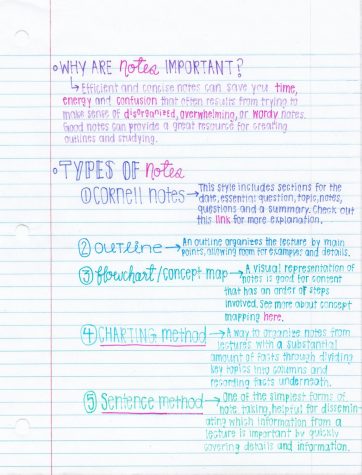 ◦WHY ARE notes IMPORTANT?
↳ Efficient and concise notes can save you time,
energy and confusion that often results from trying to
make sense of disorganized, overwhelming, or wordy notes.
Good notes can provide a great resource for creating
outlines and studying.
◦TYPES OF notes
① CORNELL NOTES → This style includes sections for the
date, essential question, topic, notes,
questions and a summary. Check out
this link for more explanation.
② outline → An outline organizes the lecture by main
points, allowing room for examples and details.
③ flowchart/concept map → A visual representation of
notes is good for content
that has an order of steps
involved. See more about concept
mapping here.
④ CHARTING method → A way to organize notes from
lectures with a substantial
amount of facts through dividing
key topics into columns and
recording facts underneath.
⑤ Sentence method → One of the simplest forms of
note taking, helpful for dissemin-
ating which information from a
lecture is important by quickly
covering details and information.